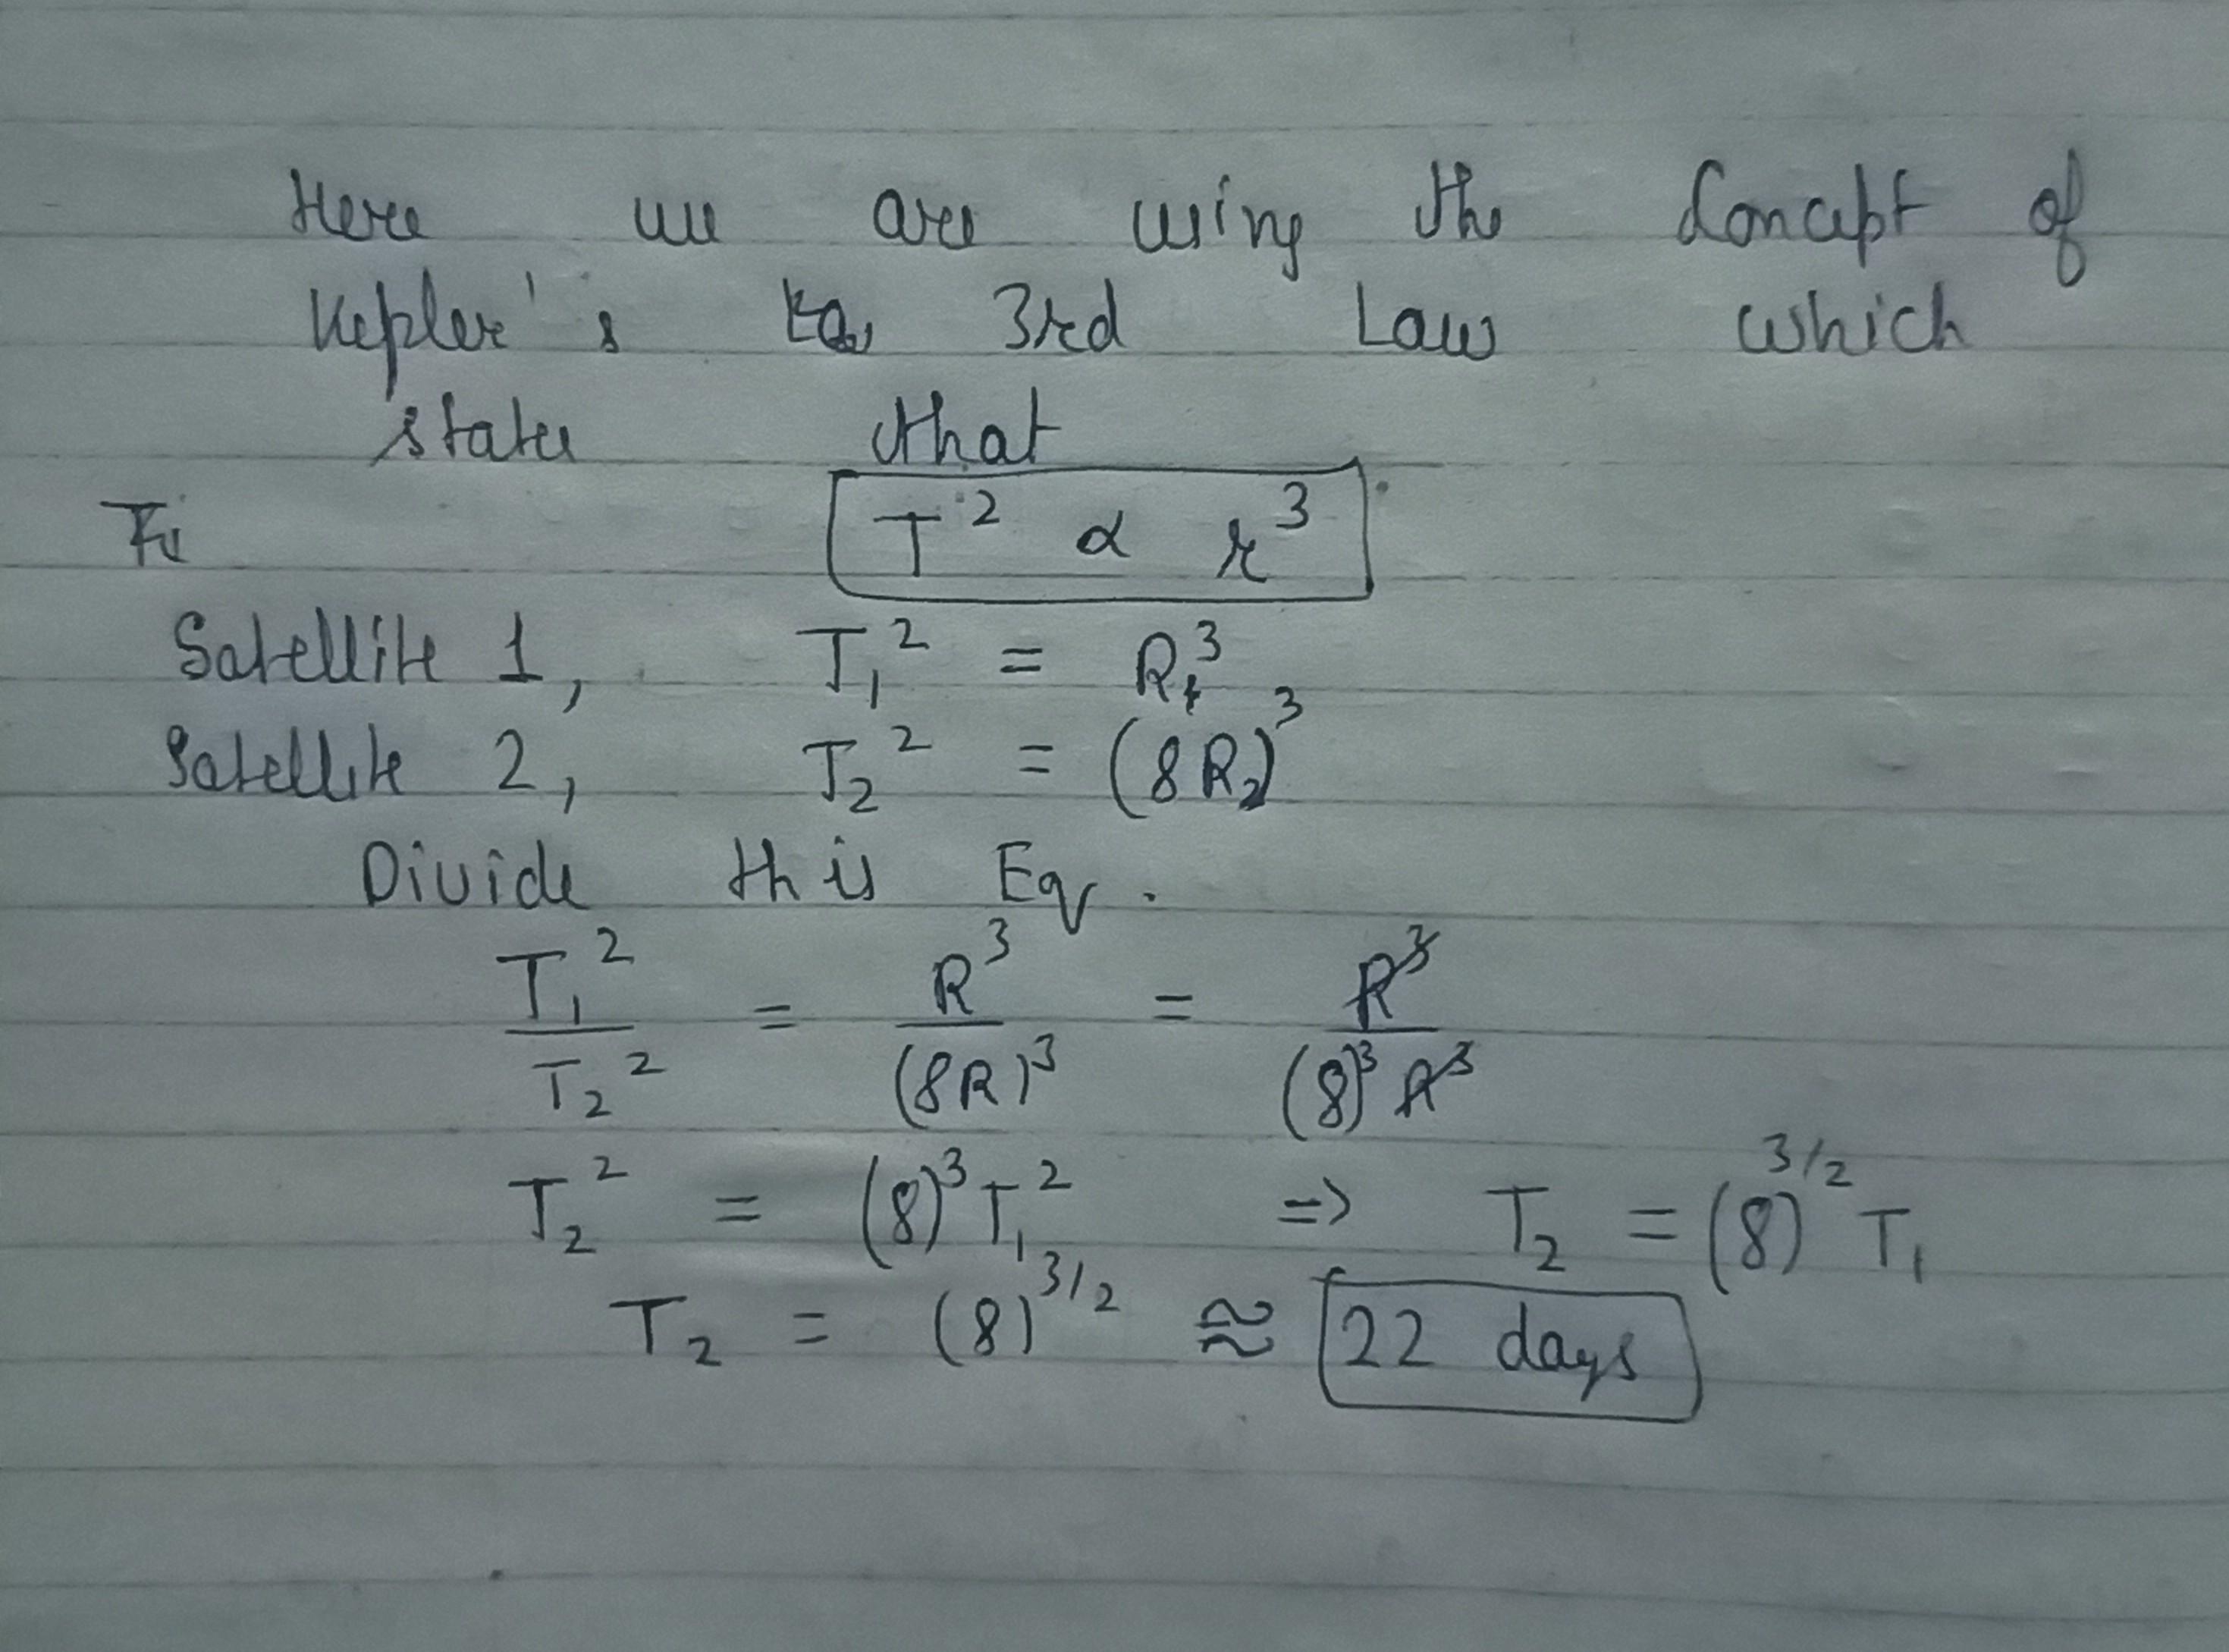 Here we are using the Concept of
Kepler's 3rd Law which
states that
T² ∝ r³
Satellite 1, T₁² = R³
Satellite 2, T₂² = (8R)³
Divide this Eq.
T₁²/T₂² = R³/(8R)³ = R³/(8)³R³
T₂² = (8)³T₁² => T₂ = (8)^3/2 T₁
T₂ = (8)^3/2 ≈ 22 days